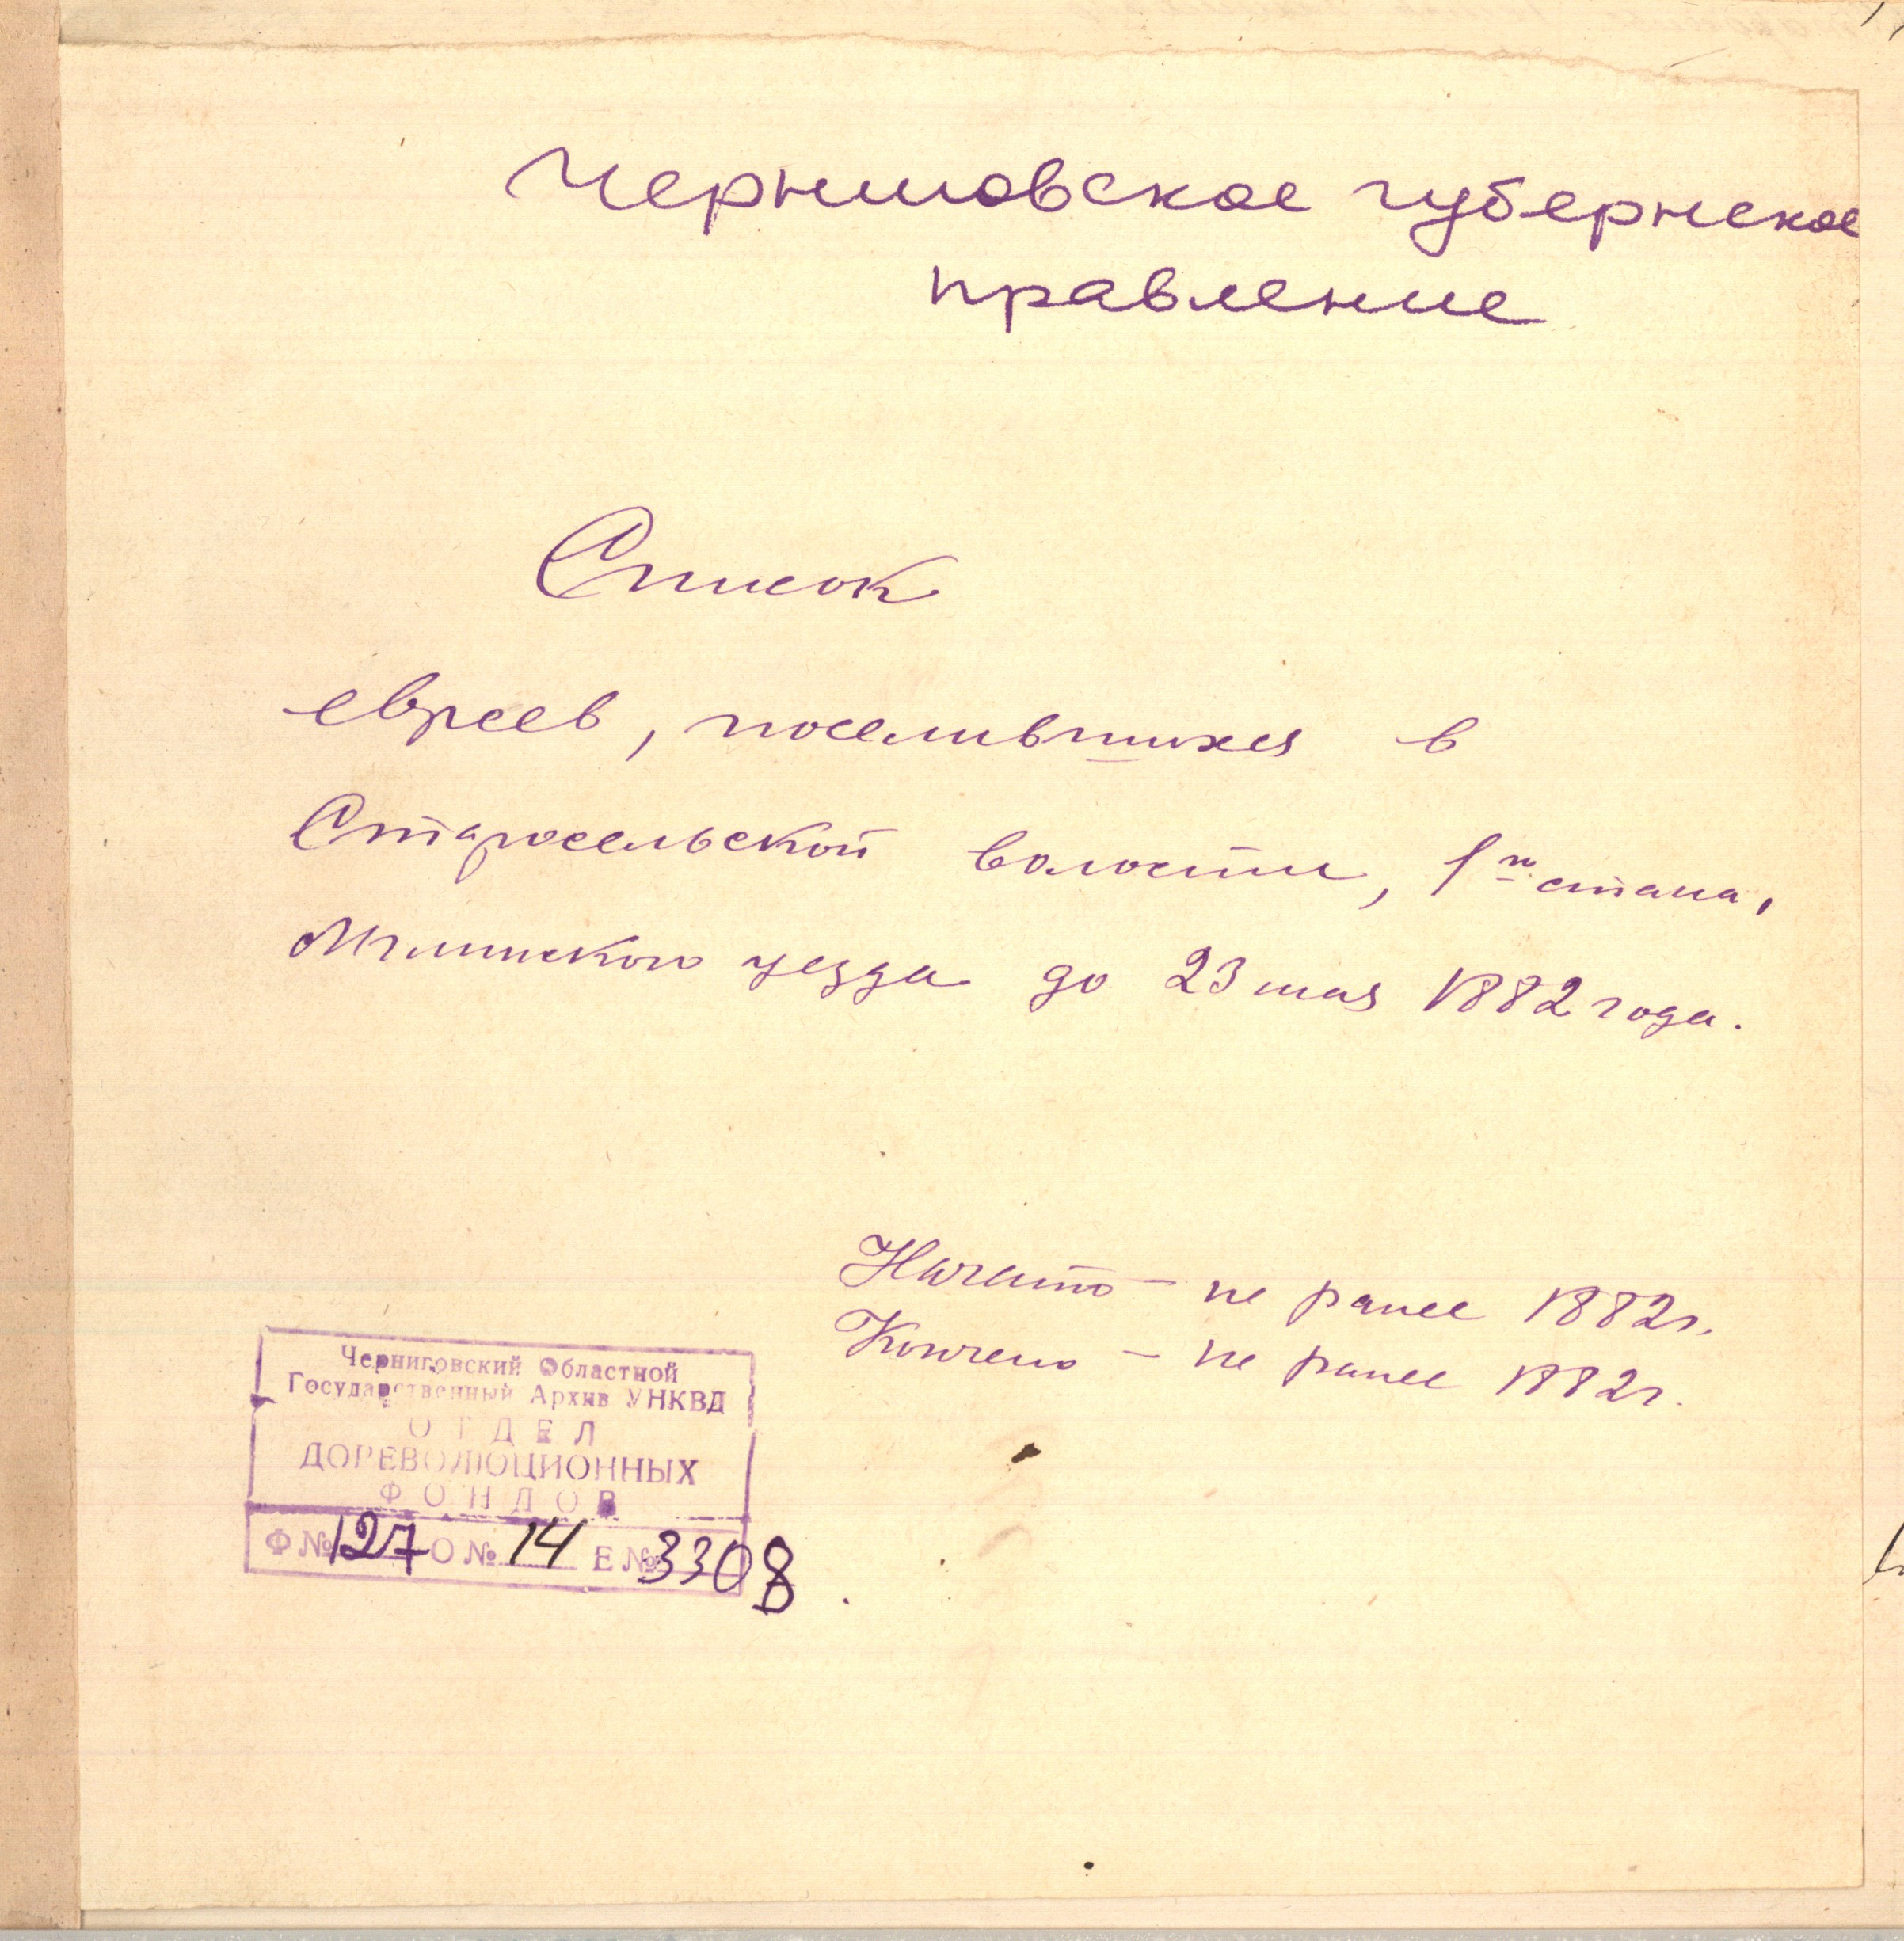 Черниговское губернское
правление
Список
евреев, поселившихся в
Старосельской волости, 1го стана,
Мглинского уезда до 23 мая 1882 года.
Начато – не ранее 1882 г.
Кончено – не ранее 1882 г.
Черниговский Областной
Государственный Архив УНКВД
ОТДЕЛ
ДОРЕВОЛЮЦИОННЫХ
ФОНДОВ
Ф № 127 О № 14 Е № 3308